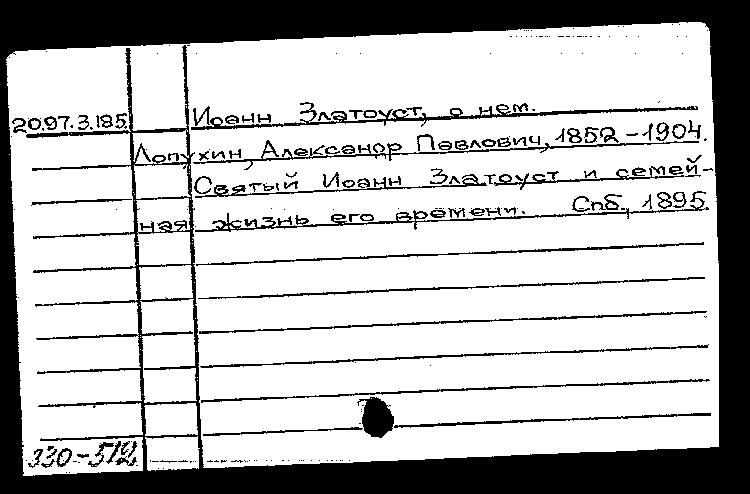 Иоанн Златоуст, о нем.
20.97.3.185
Лопухин, Александр Павлович, 1852-1904.
Святый Иоанн Златоуст и семей-
ная жизнь его времени. Спб., 1895.
330-512